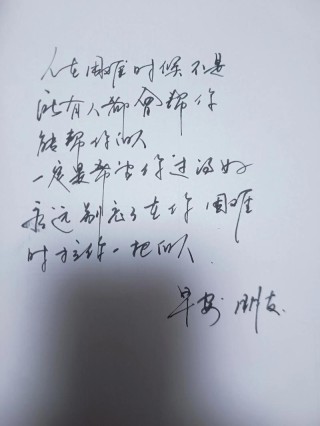 人在困难时候不是
所有人都会帮你
能帮你的人
一定是希望你过得好
永远别忘了在你困难
时拉你一把的人
早安 朋友